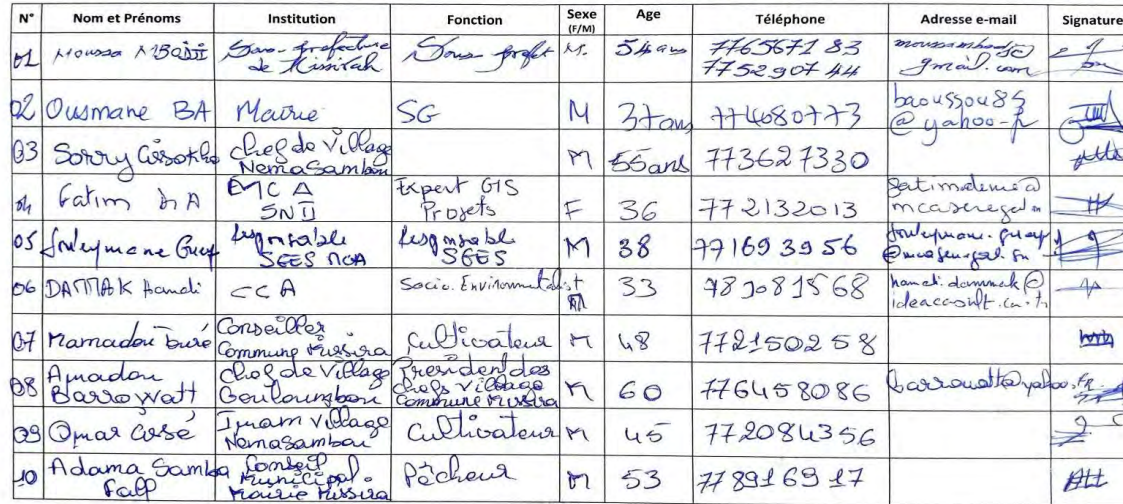 N° Nom et Prénoms Institution Fonction Sexe (F/M) Age Téléphone Adresse e-mail Signature
01 Moussa MBODJI Sous-préfecture de Missirah Sous préfet M. 54 ans 776567183 775290744 moussambodj@gmail.com
02 Ousmane BA Mairie SG M 37 ans 774680773 baoussou85@yahoo.fr
03 Sorry Cissokho Chef de Village Nemasambou M 55ans 773627330
04 Fatim BA MCA SN II Expert GIS Projets F 36 772132013
05 Souleymane Gueye Responsable SGES MCA Responsable SGES M 38 771693956
06 DAMMAK Hamdi CCA Socio. Environnementalist M 33 hamdi.dammak@
07 Mamadou Touré Conseiller Commune Missira Cultivateur M 48 772150258
08 Amadou Barro Watt Chef de Village Gouloumbou President des chefs village Commune Missira M 60 776458086 barrowatt@yahoo.fr
09 Omar Cissé Imam Village Nemasambou Cultivateur M 45 772084356
10 Adama Samba Fall Conseil Municipal Mairie Missira Pêcheur M 53 778916917